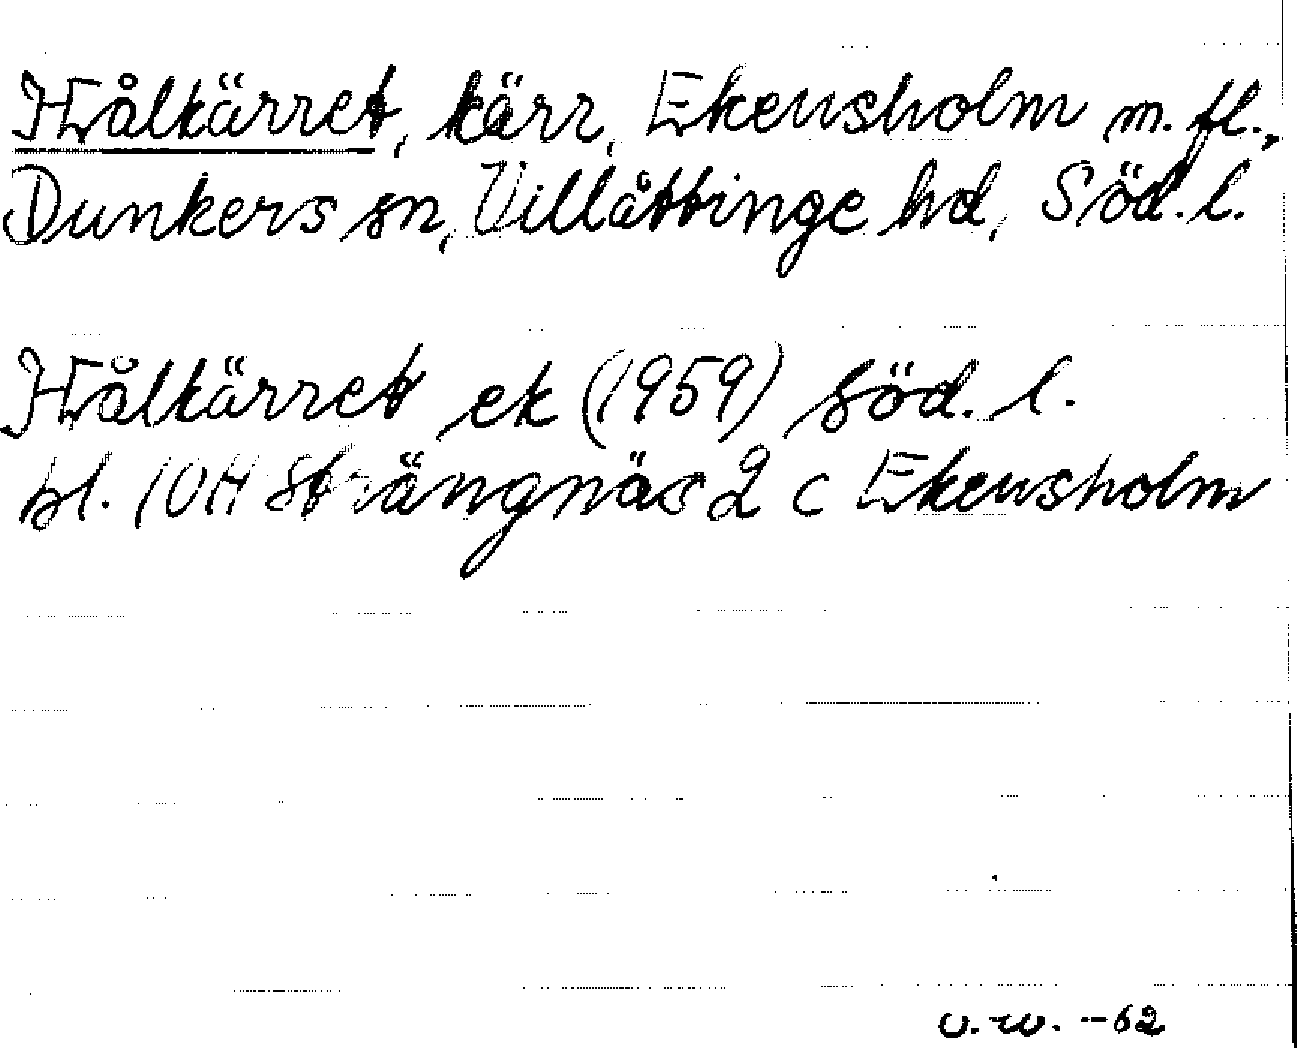 Hålkärret, kärr, Ekensholm m. fl.,
Dunkers sn, Villåttinge hd, Söd. l.
Hålkärret ek (1959) Söd. l.
bl. 10H Strängnäs 2 c Ekensholm
v. w. -62